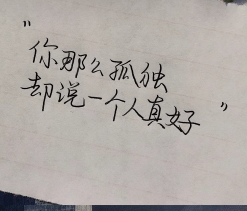 "你那么孤独
却说一个人真好"